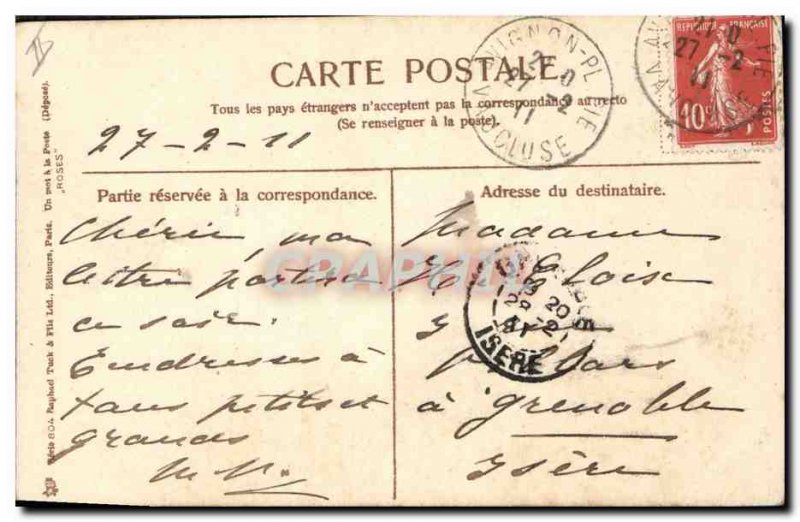 CARTE POSTALE
Tous les pays étrangers n'acceptent pas la correspondance au recto
(Se renseigner à la poste).
27-2-11
Partie réservée à la correspondance.
Chérie, ma
lettre partira
ce soir.
Tendresses à
tous petits et
grands
Adresse du destinataire.
Madame
à Grenoble
Isère
AVIGNON-PL PIE
27-2
11
VAUCLUSE
REPUBLIQUE FRANÇAISE
10c
POSTES
20
28-2
11
ISERE
Série 804 Raphael Tuck & Fils Ltd., Editeurs, Paris. Un mot à la Poste (Déposé).
"ROSES"